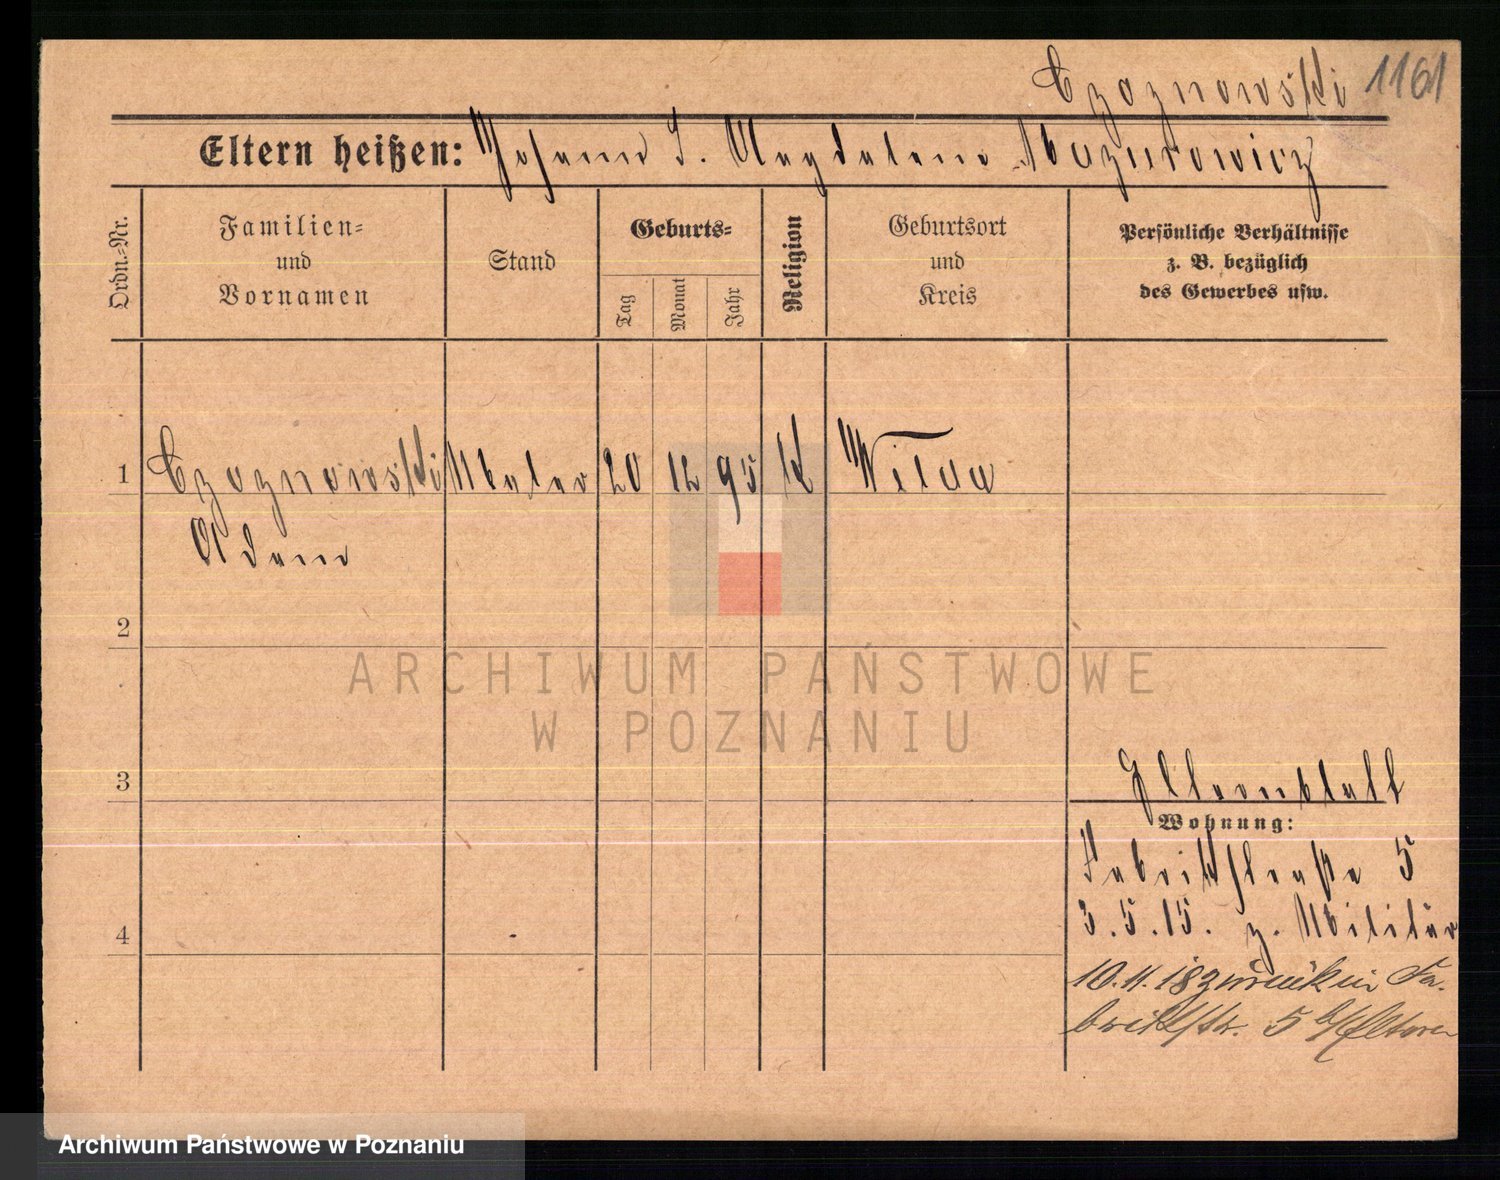 Czoznowski 1161
Eltern heißen: Johann S. Magdalena Mazurowicz
Ordn.-Nr.
Familien-
und
Vornamen
Stand
Geburts-
Tag
Monat
Jahr
Religion
Geburtsort
und
Kreis
Persönliche Verhältnisse
z. B. bezüglich
des Gewerbes usw.
1 Czoznowski Maler 20 12 95 K Wilda
Adam
2
3
Elternblatt
Wohnung:
Fabrikstraße 5
3.5.15. z. Militär
4
10.11.18 zurück in Fa-
brikstr. 5 b/ Eltern
ARCHIWUM PAŃSTWOWE
W POZNANIU
Archiwum Państwowe w Poznaniu